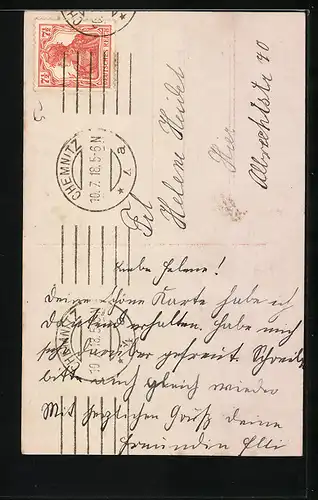 7½
7½
DEUTSCHES REICH
CHEMNITZ
10.7.18.5-6N
* 7. a
Frl
Helene Heidel
Hier
Albrechtstr 40
Liebe Helene!
Deine schöne Karte habe ich
dankend erhalten. Habe mich
sehr darüber gefreut. Schreib
bitte auch gleich wieder
Mit herzlichen Gruß deine
Freundin Elli